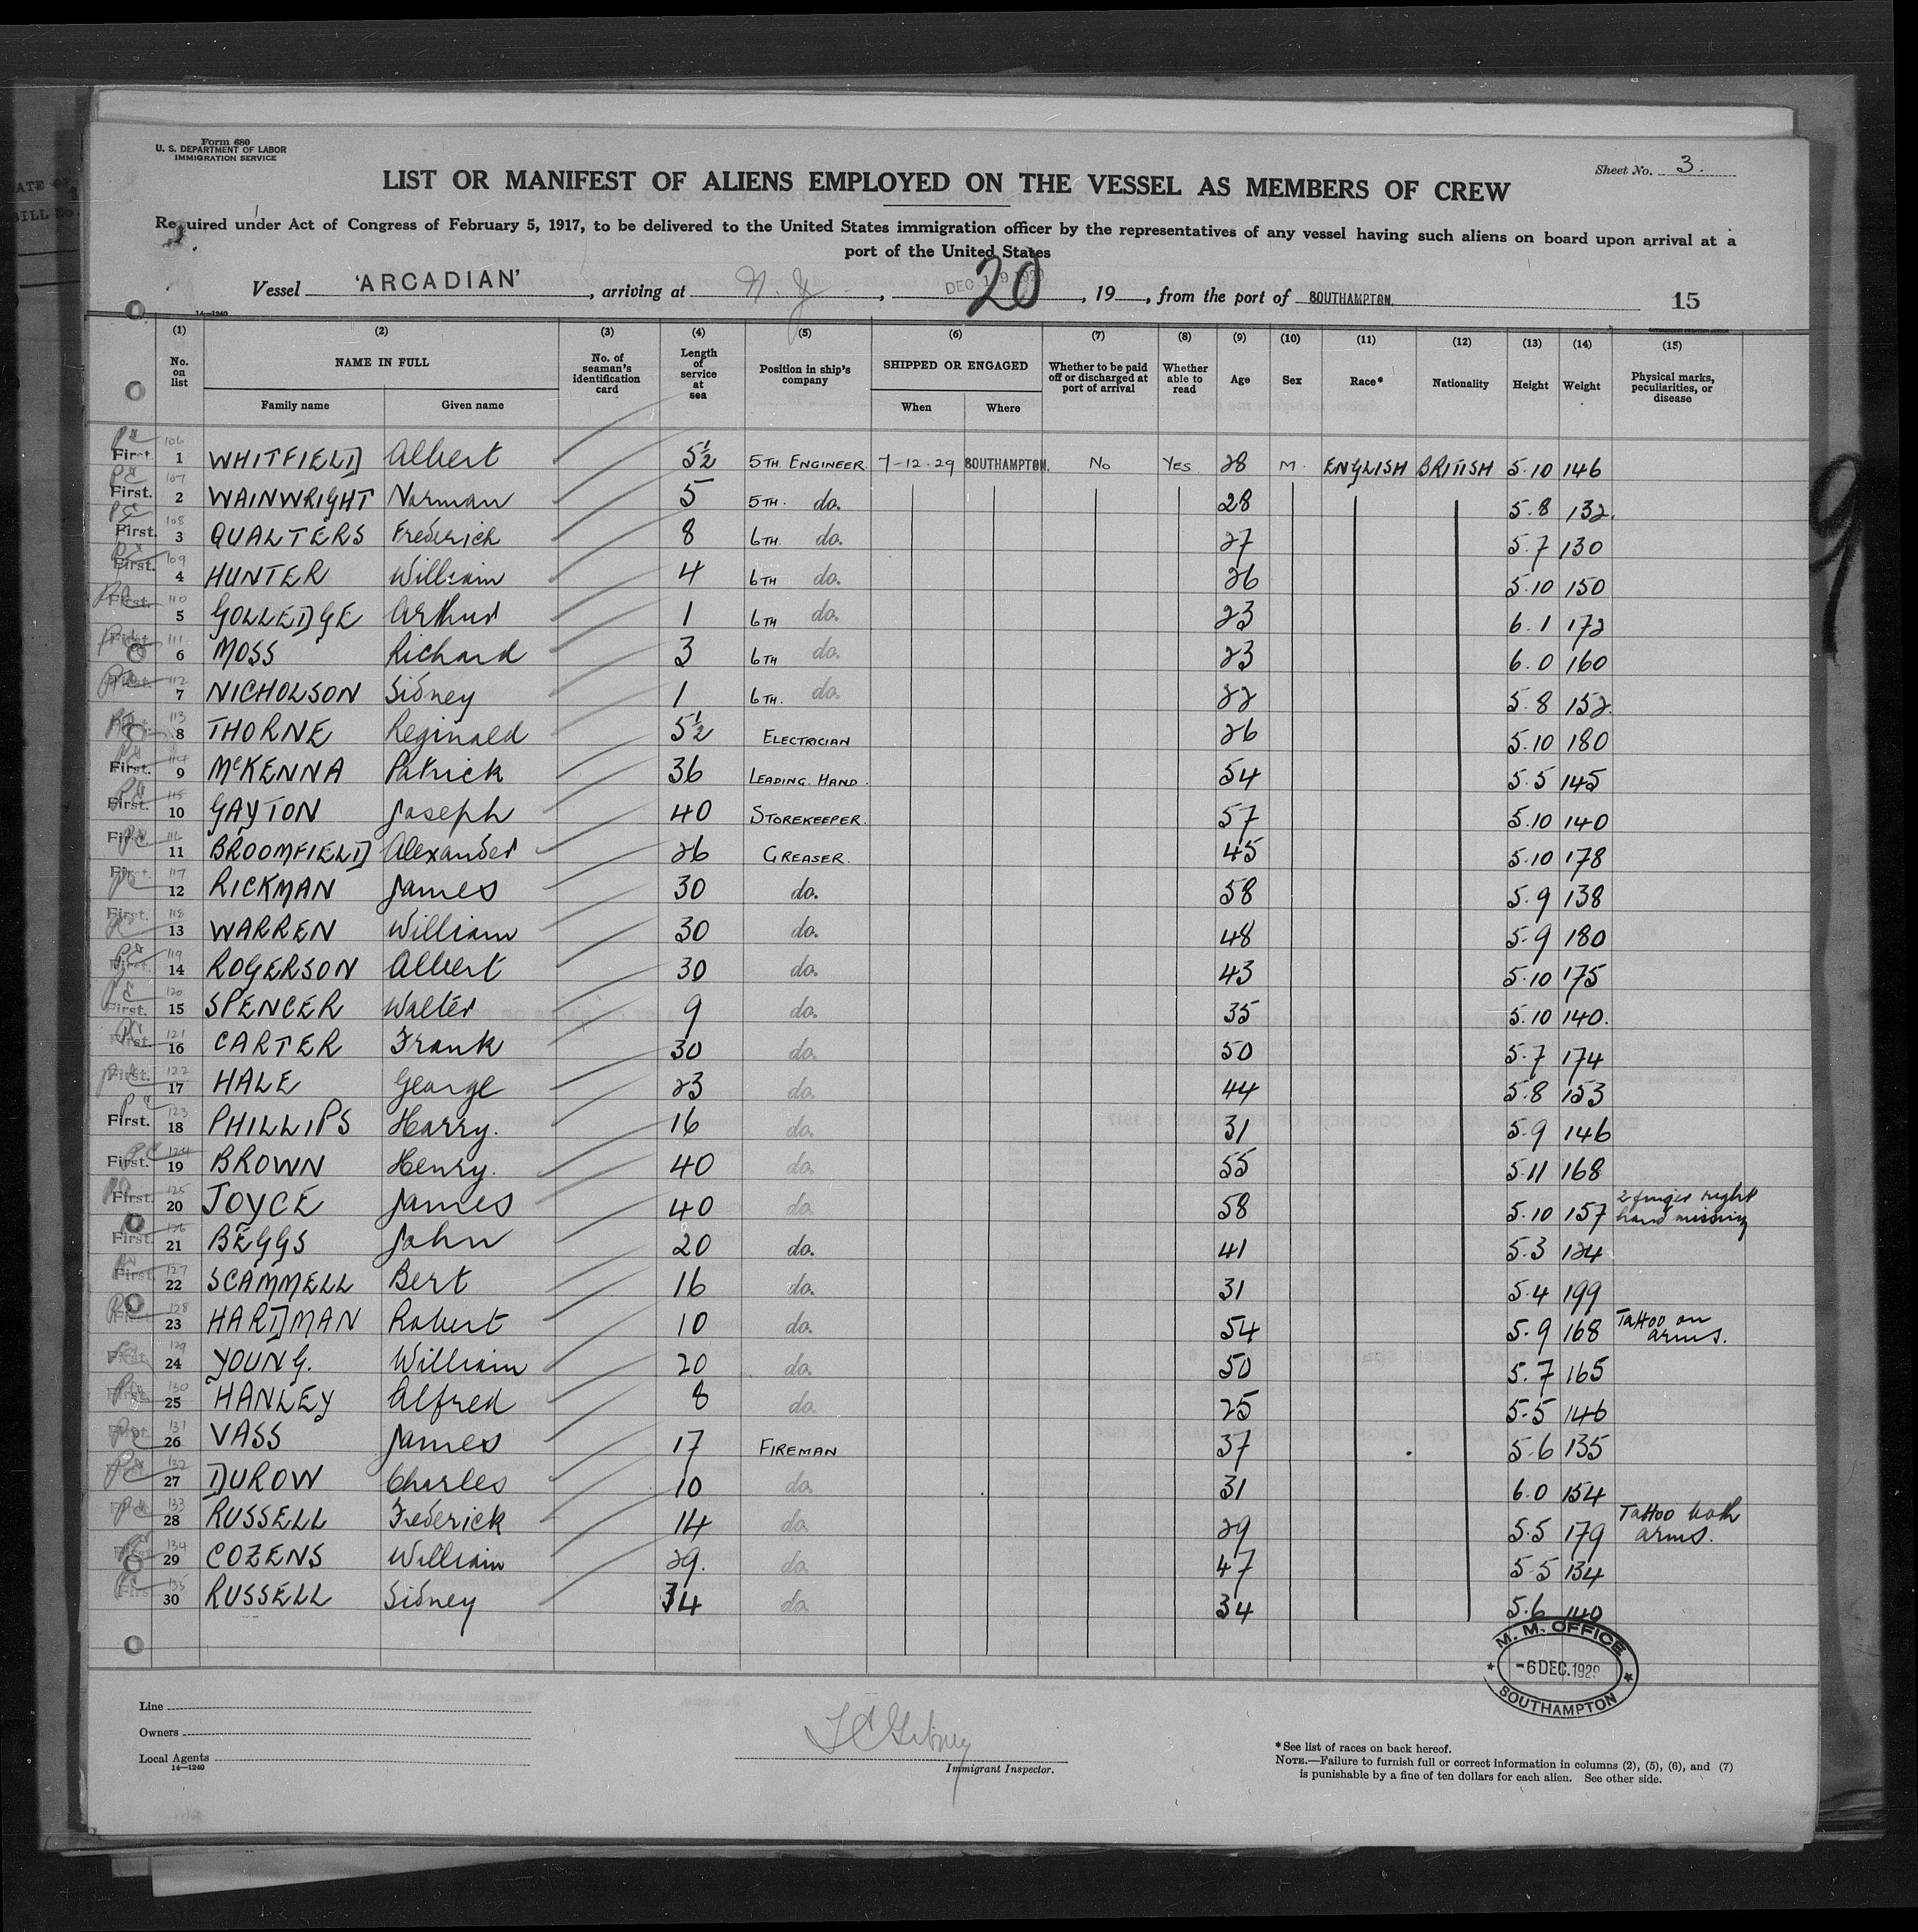 Form 680
U. S. DEPARTMENT OF LABOR
IMMIGRATION SERVICE
Sheet No. 3.
LIST OR MANIFEST OF ALIENS EMPLOYED ON THE VESSEL AS MEMBERS OF CREW
Required under Act of Congress of February 5, 1917, to be delivered to the United States immigration officer by the representatives of any vessel having such aliens on board upon arrival at a
port of the United States
Vessel 'ARCADIAN', arriving at N. Y., DEC 19 20, 19, from the port of SOUTHAMPTON. 15
14—1240
(1) (2) (3) (4) (5) (6) (7) (8) (9) (10) (11) (12) (13) (14) (15)
No. on list NAME IN FULL Family name Given name No. of seaman's identification card Length of service at sea Position in ship's company SHIPPED OR ENGAGED When Where Whether to be paid off or discharged at port of arrival Whether able to read Age Sex Race* Nationality Height Weight Physical marks, peculiarities, or disease
First. 106 1 WHITFIELD Albert 5½ 5TH ENGINEER 7-12-29 SOUTHAMPTON. No Yes 28 M. ENGLISH BRITISH 5.10 146
First. 107 2 WAINWRIGHT Norman 5 5TH. do. 28 5.8 132.
First. 108 3 QUALTERS Frederick 8 6TH. do. 27 5.7 130
First. 109 4 HUNTER William 4 6TH do. 26 5.10 150
First. 110 5 GOLLEDGE Arthur 1 6TH do. 23 6.1 172
First. 111 6 MOSS Richard 3 6TH do. 23 6.0 160
First. 112 7 NICHOLSON Sidney 1 6TH. do. 22 5.8 152.
First. 113 8 THORNE Reginald 5½ ELECTRICIAN 26 5.10 180
First. 114 9 McKENNA Patrick 36 LEADING HAND. 54 5.5 145
First. 115 10 GAYTON Joseph 40 STOREKEEPER. 57 5.10 140
First. 116 11 BROOMFIELD Alexander 26 GREASER. 45 5.10 178
First. 117 12 RICKMAN James 30 do. 58 5.9 138
First. 118 13 WARREN William 30 do. 48 5.9 180
First. 119 14 ROGERSON Albert 30 do. 43 5.10 175
First. 120 15 SPENCER Walter 9 do. 35 5.10 140.
First. 121 16 CARTER Frank 30 do. 50 5.7 174
First. 122 17 HALE George 23 do. 44 5.8 153
First. 123 18 PHILLIPS Harry. 16 do. 31 5.9 146
First. 124 19 BROWN Henry. 40 do. 55 5.11 168
First. 125 20 JOYCE James 40 do. 58 5.10 157 2 finger right hand missing
First. 126 21 BEGGS John 20 do. 41 5.3 124
First. 127 22 SCAMMELL Bert 16 do. 31 5.4 199
First. 128 23 HARDMAN Robert 10 do. 54 5.9 168 Tattoo on arms.
First. 129 24 YOUNG. William 20 do. 50 5.7 165
First. 130 25 HANLEY Alfred 8 do. 25 5.5 146
First. 131 26 VASS James 17 FIREMAN 37 5.6 135
132 27 DUROW Charles 10 do. 31 6.0 154
First. 133 28 RUSSELL Frederick 14 do. 29 5.5 179 Tattoo both arms.
First. 134 29 COZENS William 29. do. 47 5.5 134
First. 135 30 RUSSELL Sidney 34 do. 34 5.6 140
M. M. OFFICE
-6 DEC. 1929
SOUTHAMPTON
Line
Owners
Local Agents
14—1240
Immigrant Inspector.
*See list of races on back hereof.
NOTE.—Failure to furnish full or correct information in columns (2), (5), (6), and (7)
is punishable by a fine of ten dollars for each alien. See other side.
9